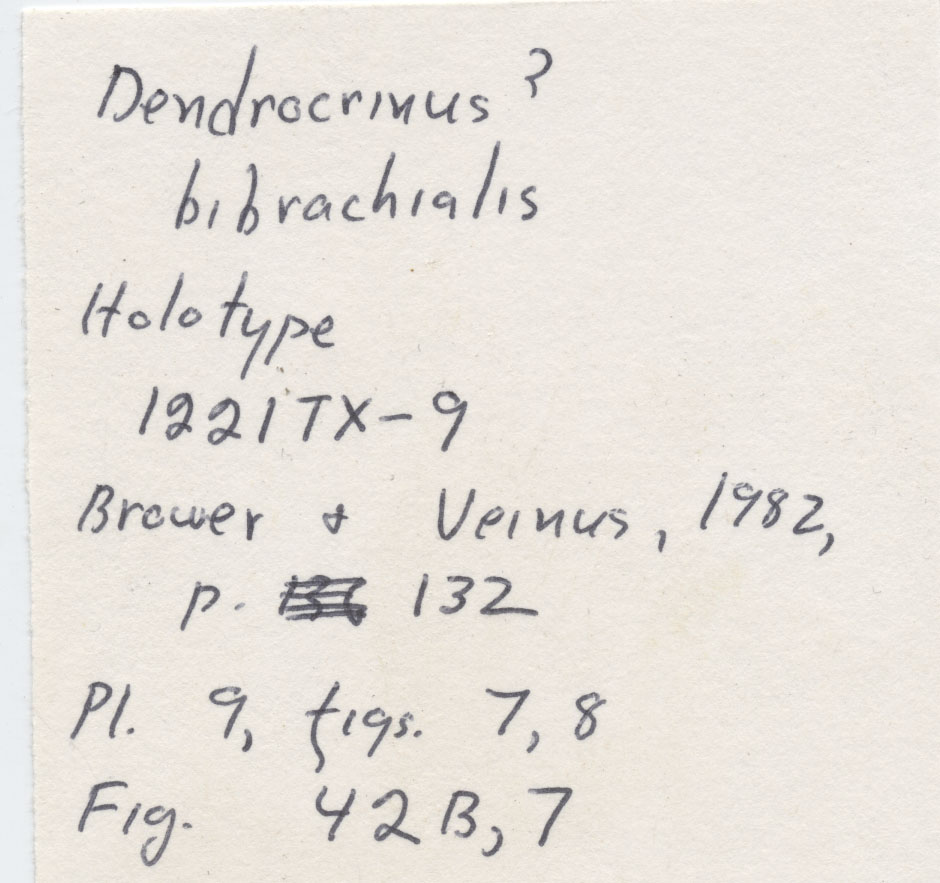 Dendrocrinus ?
bibrachialis
Holotype
1221TX-9
Brower & Veinus, 1982,
p. 132
Pl. 9, figs. 7, 8
Fig. 42B, 7